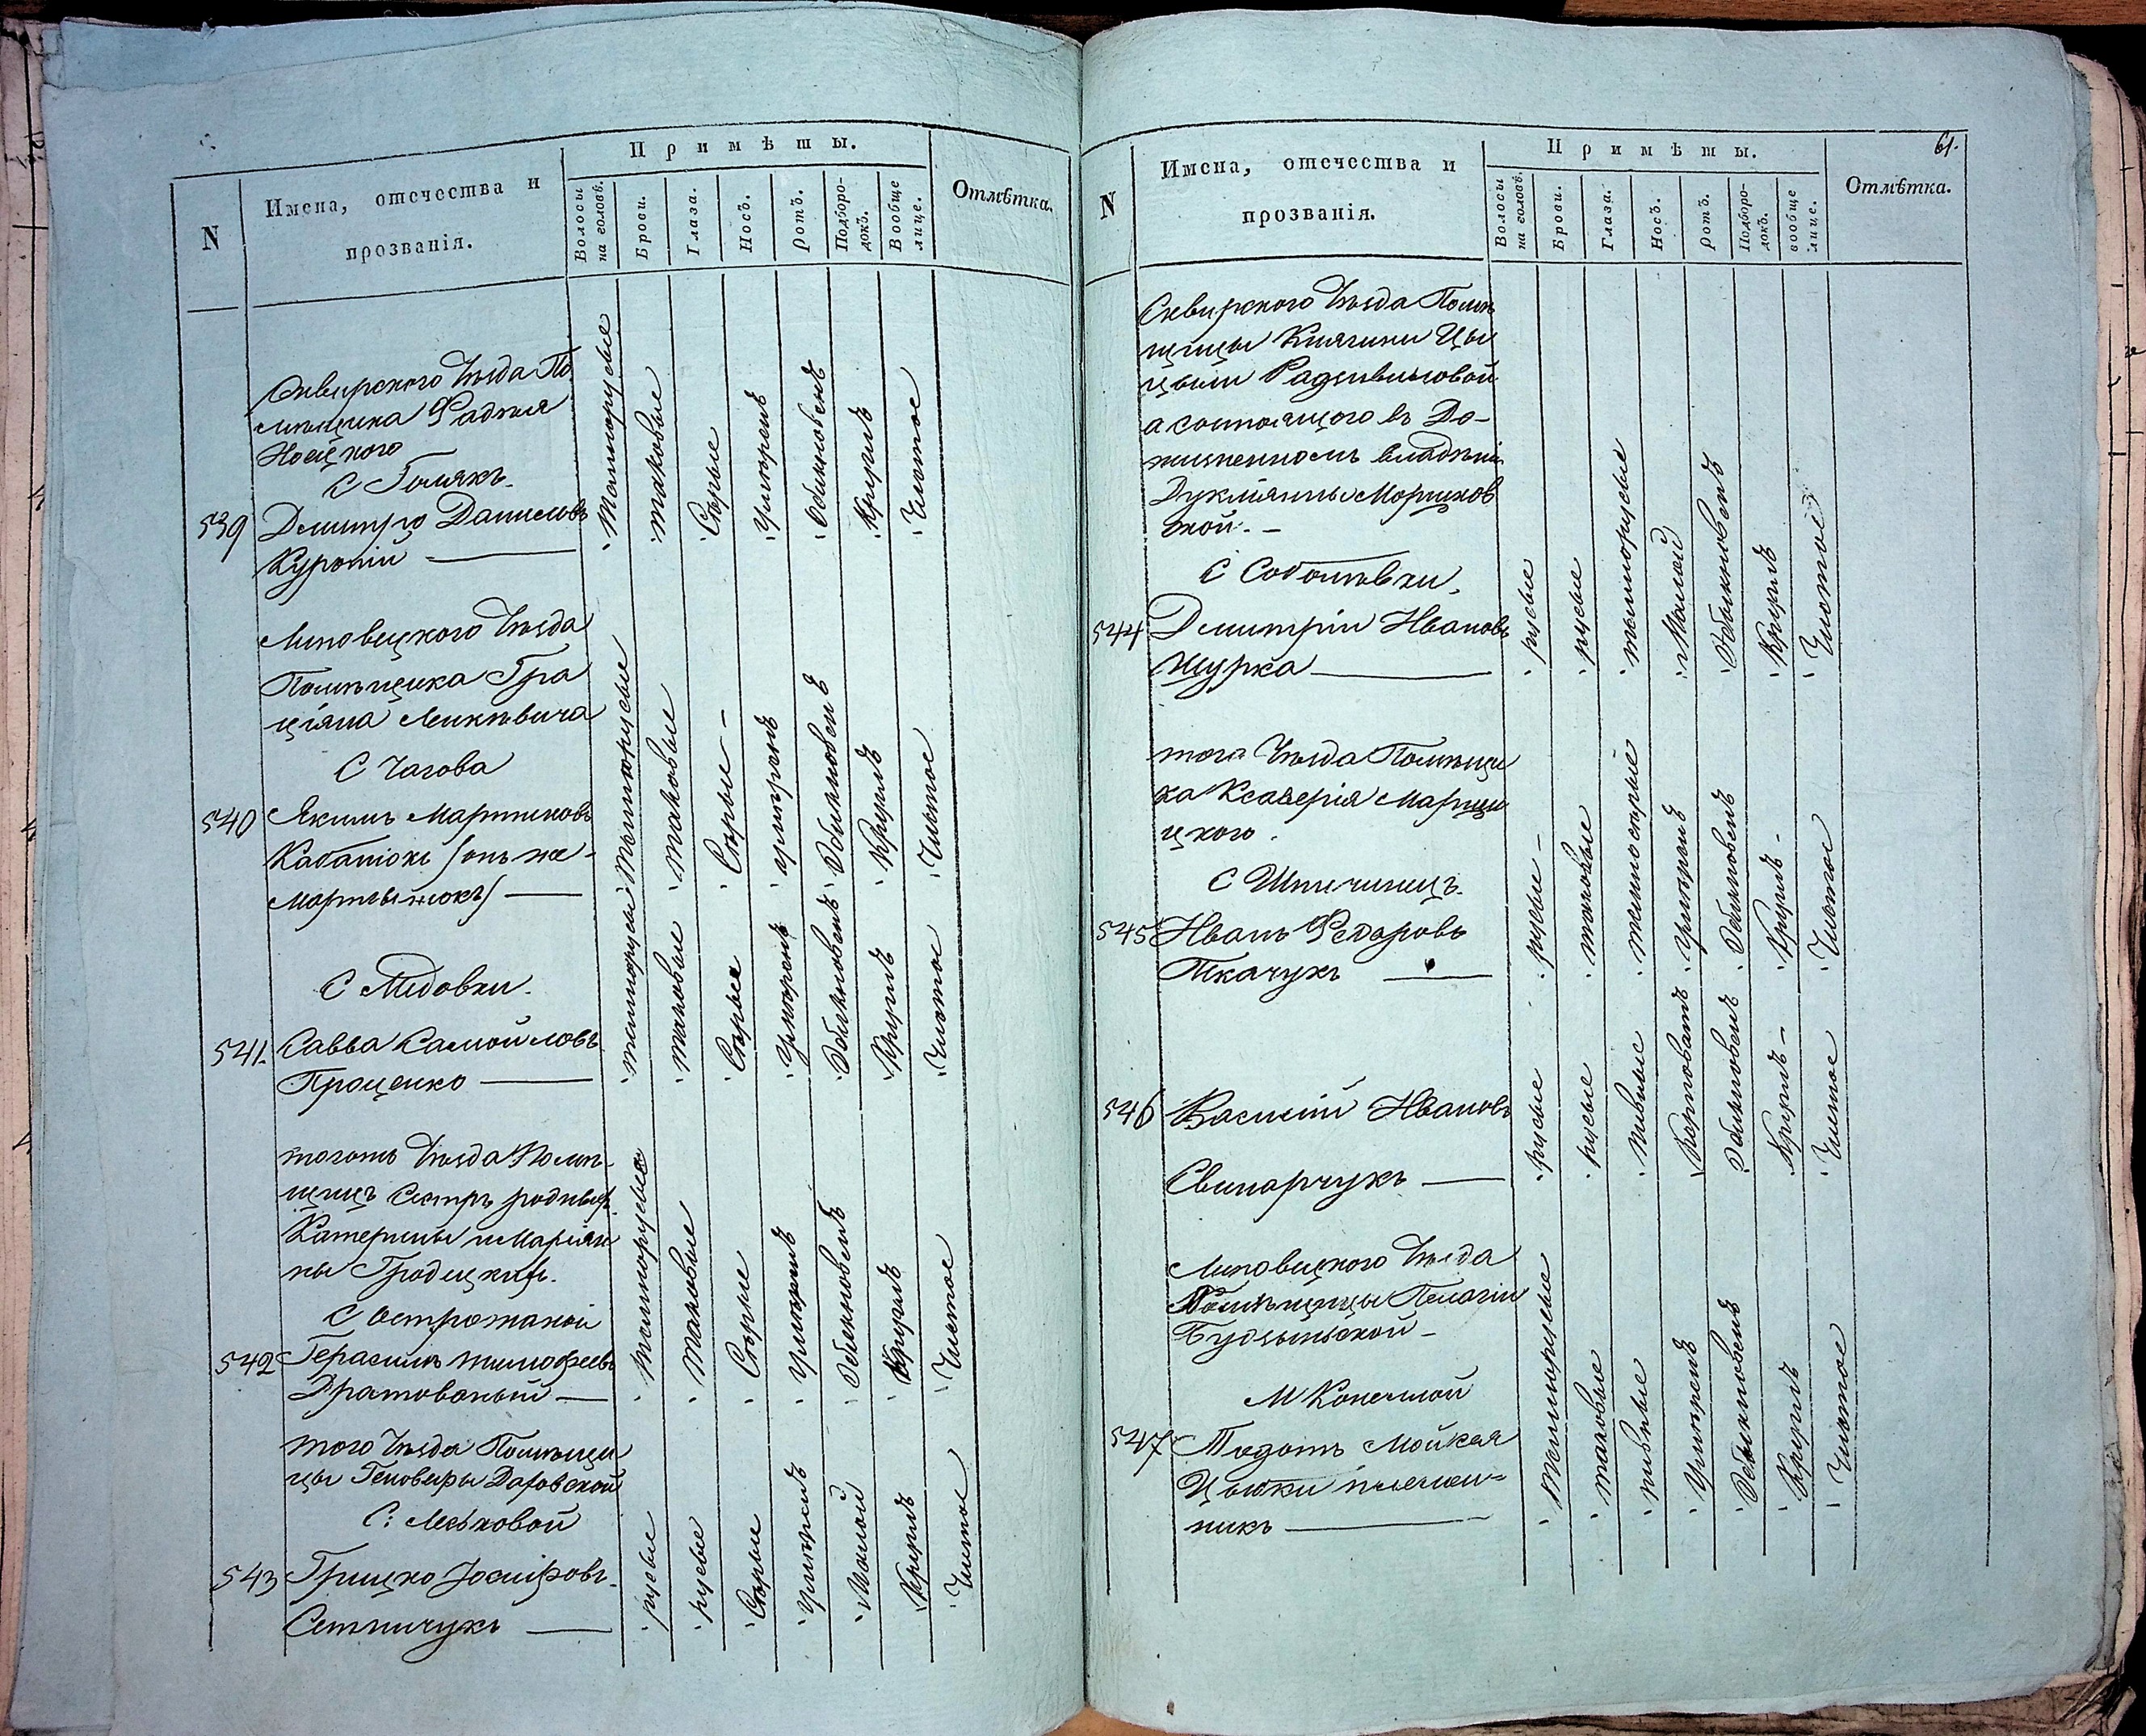 N
Имена, отечества и
прозванія.
Примѣты.
Волосы
на головѣ.
Брови.
Глаза.
Носъ.
Ротъ.
Подборо-
докъ.
Вообще
лице.
Отмѣтка.
Сквирского Уѣзда По
мѣщика Фадѣя
Носѣцкого
С Голякъ.
539 Дмитро Даниловъ
Куропій
темнорусые
таковые
Сѣрые
Умѣренъ
Обыкновенъ
Круглъ
Чистое
Липовецкого Уѣзда
Помѣщика Гра
ціяна
С Чагова
540 Якимъ Мартиновъ
Кабанюкъ (онъ же
Мартынюкъ)
темнорусые
таковые
Сѣрые
умѣренъ
Обыкновенъ
Круглъ
Чистое
С Медовки.
541. Савва Самойловъ
Проценко
темнорусые
таковые
Сѣрые
Умѣренъ
Обыкновенъ
Круглъ
Чистое
тогожъ Уѣзда Помѣ-
щицъ Сестръ родныхъ
Катерины и Маріян
ны Гродецкихъ.
С Острожаной
542 Герасимъ Тимофеевъ
Дратованый
темнорусые
таковые
Сѣрые
Умѣренъ
Обыкновенъ
Круглъ
Чистое
того Уѣзда Помѣщи
цы Геновефы Даровской
С: Леськовой
543 Грицко Іосифовъ
Сетничукъ
русые
русые
Сѣрые
Умѣренъ
Малой
Круглъ
Чистое
61.
N
Имена, отечества и
прозванія.
Примѣты.
Волосы
на головѣ.
Брови.
Глаза.
Носъ.
Ротъ.
Подборо-
докъ.
вообще
лице.
Отмѣтка.
Сквирского Уѣзда Помѣ
щицы Княгини Це
цыліи Радзивиловой
а состоящого въ До-
жизненномъ владѣніи
Моршков
ской. -
С Соботовки,
544 Дмитрій Ивановъ
Щурка
русые
русые
темнорусые
Малой
Обыкновенъ
Круглъ
Чистое
того Уѣзда Помѣщи
ка Ксаверія
цкого.
С Шпичинецъ.
545 Иванъ Федоровъ
Ткачукъ
русые
таковые
темносѣрые
Умѣренъ
Обыкновенъ
Круглъ
Чистое
546 Василій Ивановъ
Свинарчукъ
русые
русые
пивные
Обыкновенъ
Круглъ
Чистое
Липовецкого Уѣзда
Помѣщицы Пелагіи
Будзынской
М Конелмой
547 Тодотъ Мойсея
Цыпки племян=
никъ
темнорусые
таковые
пивные
Умѣренъ
Обыкновенъ
Круглъ
Чистое